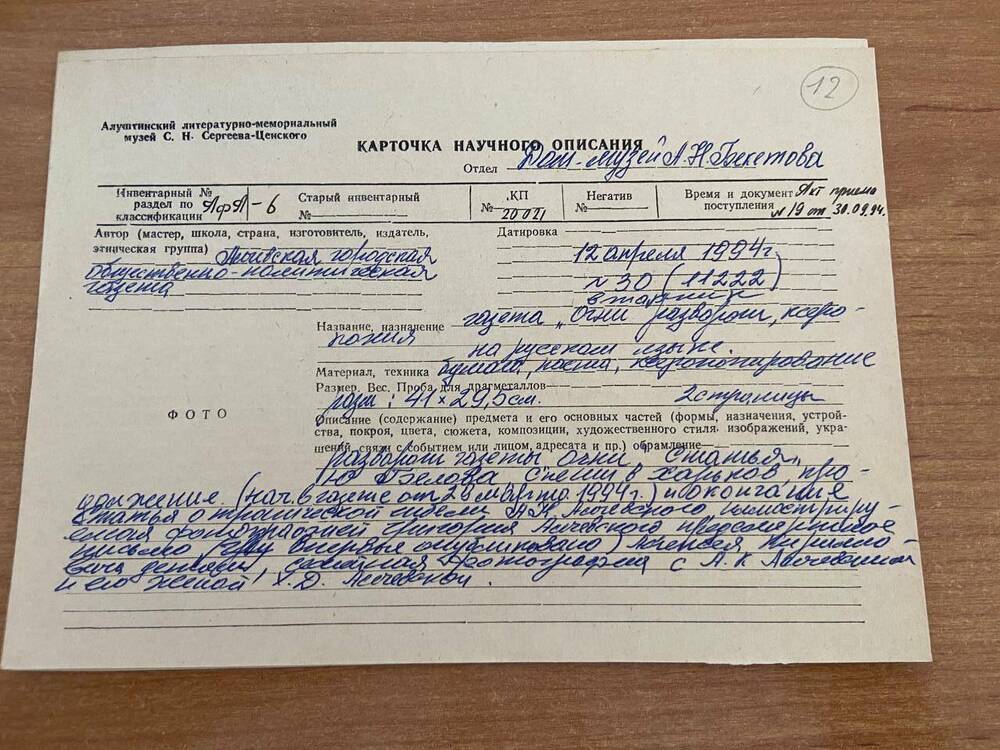 12
Алуштинский литературно-мемориальный
музей С. Н. Сергеева-Ценского
КАРТОЧКА НАУЧНОГО ОПИСАНИЯ
Отдел Дом-музей А. Н. Бекетова
Инвентарный № раздел по классификации АфА-6
Старый инвентарный №
КП № 20021
Негатив №
Время и документ поступления Акт приема № 19 от 30.09.94.
Автор (мастер, школа, страна, изготовитель, издатель,
этническая группа) городская
общественно-политическая
газета
Датировка
12 апреля 1994г.
№ 30 (11222)
вторник
Название, назначение газета „Огни разворот, ксеро-
копия
на русском языке.
Материал, техника бумага, паста, ксерокопирование
Размер. Вес. Проба для драгметаллов
разм: 41×29,5см. 2 страницы
ФОТО
Описание (содержание) предмета и его основных частей (формы, назначения, устройства, покроя, цвета, сюжета, композиции, художественного стиля, изображений, украшений, связи с событием или лицом, адресата и пр.) обрамление
разворот газеты Огни Статья
Ю Белова Спешил в Харьков про-
должение (нач. в газете от 2 марта 1994г.) и окончание
статья о трагической гибели А. К Алчевского, иллюстриру-
емая фотографией Григория Алчевского предсмертное
письмо впервые опубликовано) Алексея Кирилло-
вича фотография с А. К Алчевским
и его женой Х. Д. Алчевской.